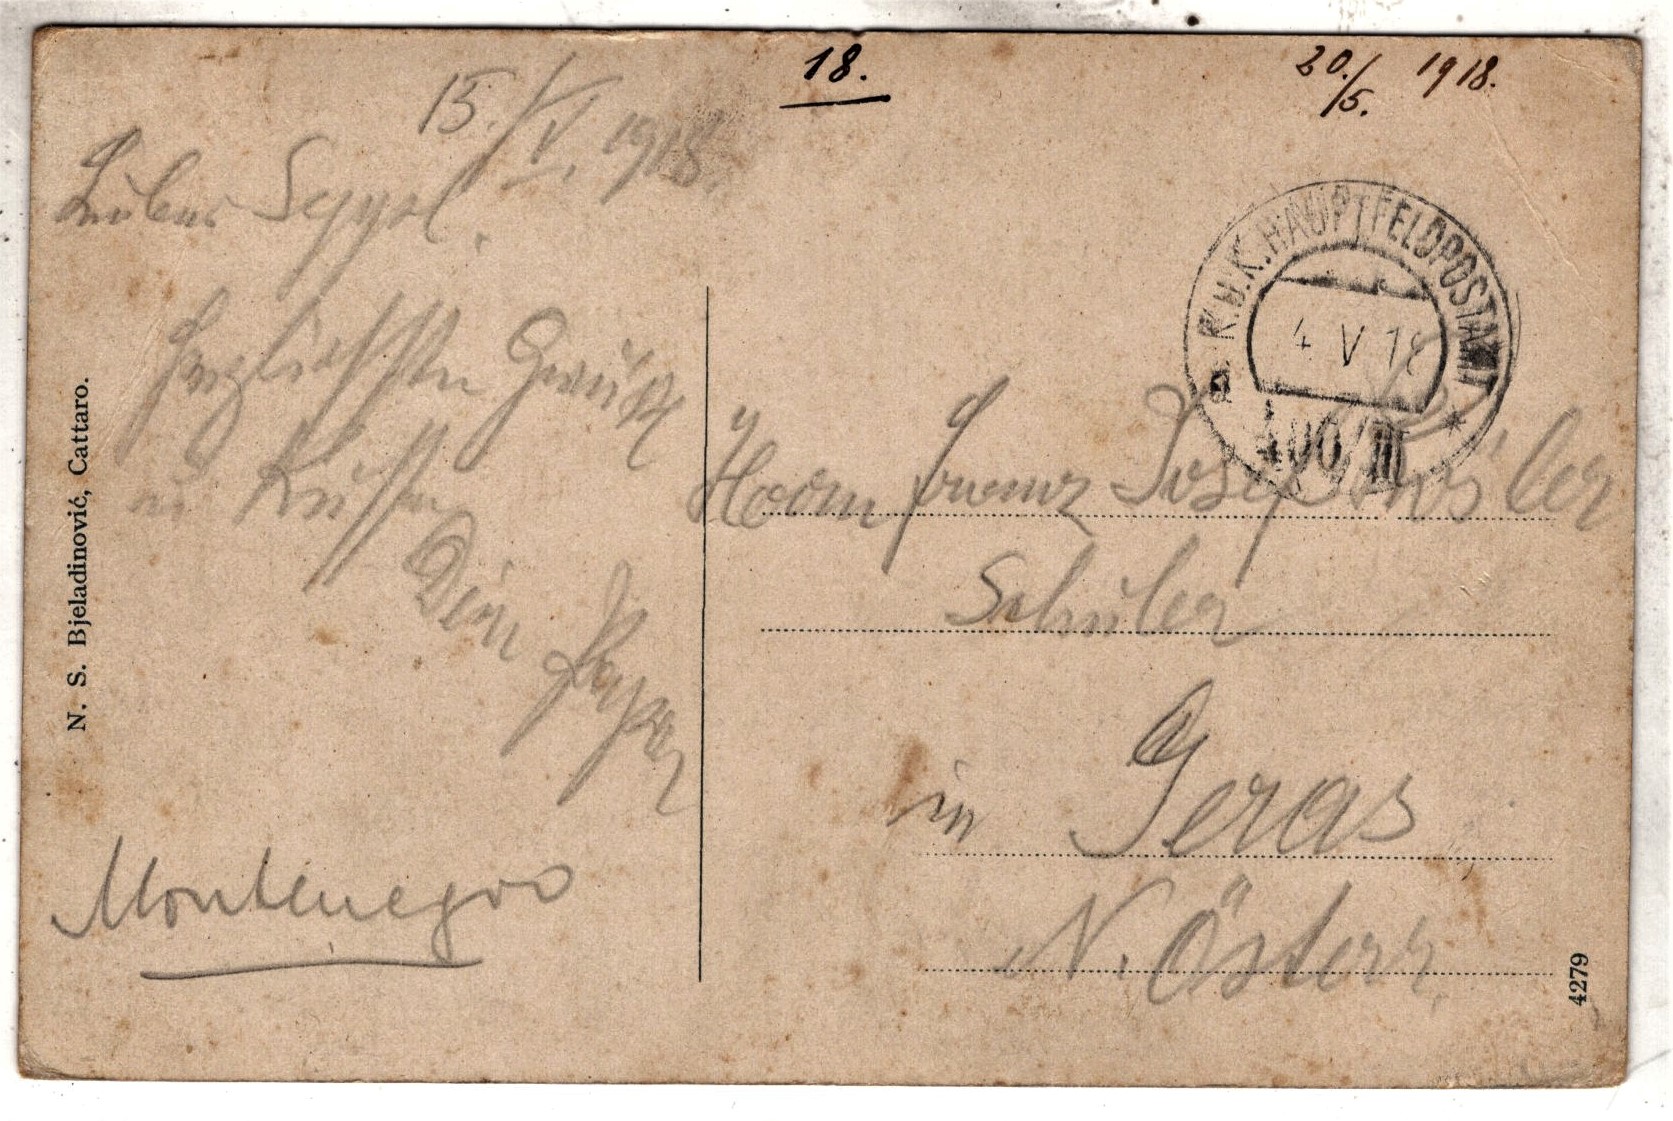 18.
20./5. 1918.
15./V. 1918.
Lieber Seppl.
Herzlichsten Gruß
u Küsse
Dein Papa
Montenegro
N. S. Bjeladinović, Cattaro.
K.U.K. HAUPTFELDPOSTAMT
4 V 18
a
400/III
*
Herrn Franz Josef
Schüler
in Geras
N. Österr.
4279